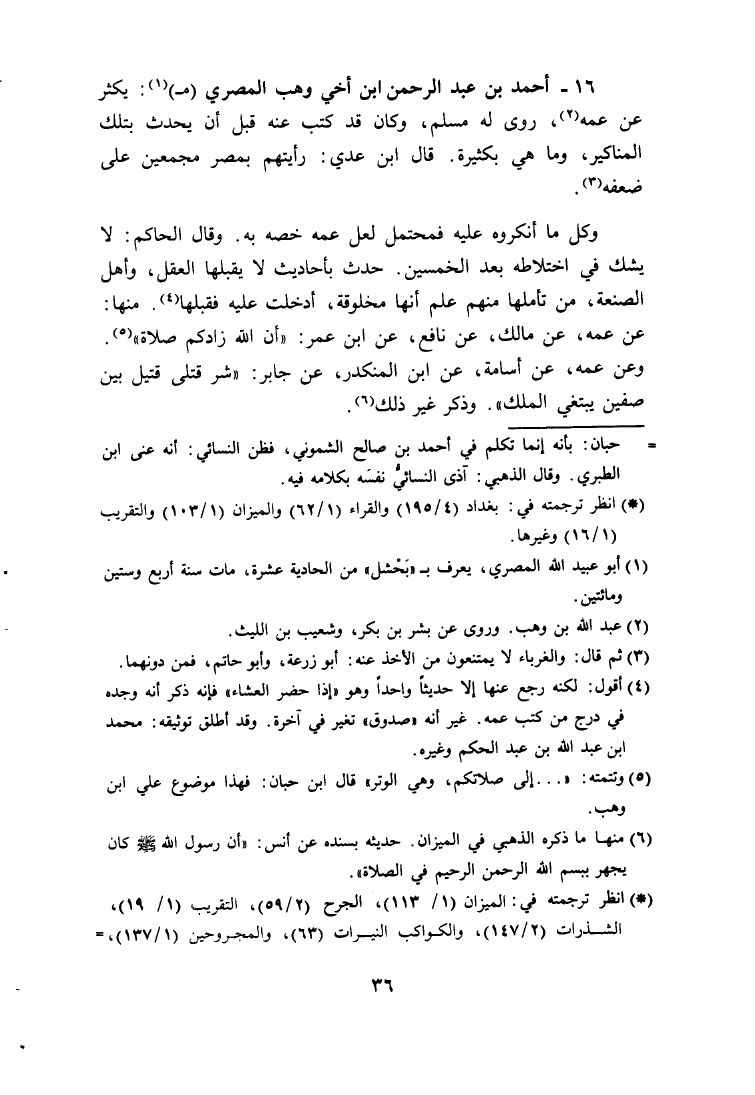 ١٦ - أحمد بن عبد الرحمن ابن أخي وهب المصري (مـ)(١): يكثر
عن عمه(٢)، روى له مسلم، وكان قد كتب عنه قبل أن يحدث بتلك
المناكير، وما هي بكثيرة. قال ابن عدي: رأيتهم بمصر مجمعين على
ضعفه(٣).
وكل ما أنكروه عليه فمحتمل لعل عمه خصه به. وقال الحاكم: لا
يشك في اختلاطه بعد الخمسين. حدث بأحاديث لا يقبلها العقل، وأهل
الصنعة، من تأملها منهم علم أنها مخلوقة، أدخلت عليه فقبلها(٤). منها:
عن عمه، عن مالك، عن نافع، عن ابن عمر: «أن الله زادكم صلاة»(٥).
وعن عمه، عن أسامة، عن ابن المنكدر، عن جابر: «شر قتلى قتيل بين
صفين يبتغي الملك». وذكر غير ذلك(٦).
= حبان: بأنه إنما تكلم في أحمد بن صالح الشموني، فظن النسائي: أنه عنى ابن
الطبري. وقال الذهبي: آذى النسائيُّ نفسَه بكلامه فيه.
(*) انظر ترجمته في: بغداد (١٩٥/٤) والقراء (٦٢/١) والميزان (١٠٣/١) والتقريب
(١٦/١) وغيرها.
(١) أبو عبيد الله المصري، يعرف بـ «بَحْشل» من الحادية عشرة، مات سنة أربع وستين
ومائتين.
(٢) عبد الله بن وهب. وروى عن بشر بن بكر، وشعيب بن الليث.
(٣) ثم قال: والغرباء لا يمتنعون من الأخذ عنه: أبو زرعة، وأبو حاتم، فمن دونهما.
(٤) أقول: لكنه رجع عنها إلا حديثاً واحداً وهو «إذا حضر العشاء» فإنه ذكر أنه وجده
في درج من كتب عمه. غير أنه «صدوق» تغير في آخرة. وقد أطلق توثيقه: محمد
ابن عبد الله بن عبد الحكم وغيره.
(٥) وتتمته: «...إلى صلاتكم، وهي الوتر» قال ابن حبان: فهذا موضوع علي ابن
وهب.
(٦) منها ما ذكره الذهبي في الميزان. حديثه بسنده عن أنس: «أن رسول الله ﷺ كان
يجهر ببسم الله الرحمن الرحيم في الصلاة».
(*) انظر ترجمته في: الميزان (١/ ١١٣)، الجرح (٥٩/٢)، التقريب (١/ ١٩)،
الشذرات (١٤٧/٢)، والكواكب النيرات (٦٣)، والمجروحين (١٣٧/١)، =
٣٦